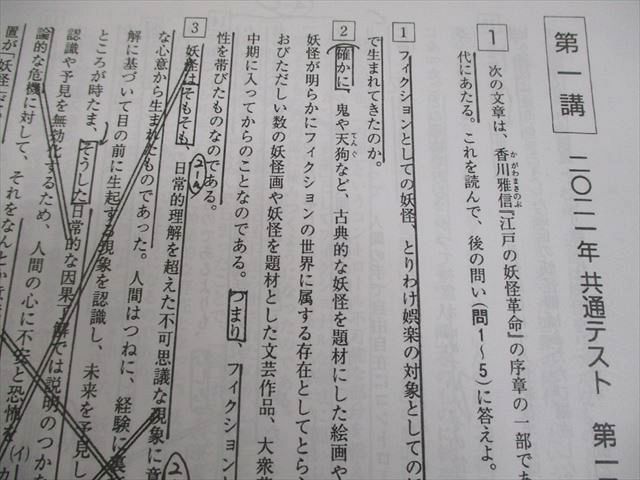 第一講 二〇二一年 共通テスト 第一
1 次の文章は、香川雅信『江戸の妖怪革命』の序章の一部であ
かがわまさのぶ
代にあたる。これを読んで、後の問い(問1~5)に答えよ。
1 フィクションとしての妖怪、とりわけ娯楽の対象としての妖
で生まれてきたのか。
2 確かに、鬼や天狗など、古典的な妖怪を題材にした絵画や
てんぐ
妖怪が明らかにフィクションの世界に属する存在としてとら
おびただしい数の妖怪画や妖怪を題材とした文芸作品、大衆
中期に入ってからのことなのである。つまり、フィクション
性を帯びたものなのである。
2-A
3 妖怪はそもそも、日常的理解を超えた不可思議な現象に意
2
な心意から生まれたものであった。人間はつねに、経験に裏
解に基づいて目の前に生起する現象を認識し、未来を予見し
ところが時たま、そうした日常的な因果了解では説明のつか
認識や予見を無効化するため、人間の心に不安と恐怖を(イ)
論的な危機に対して、それをなんとか
置が「妖怪